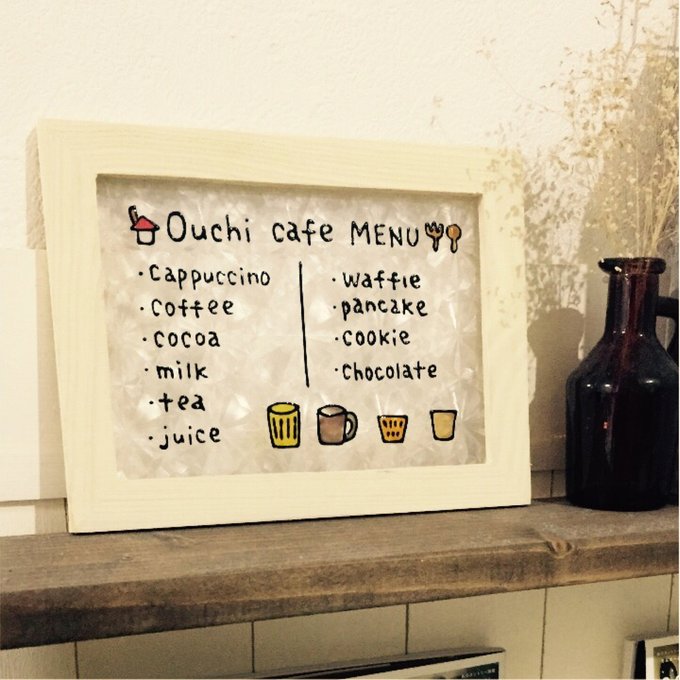 Ouchi cafe MENU
・cappuccino
・coffee
・cocoa
・milk
・tea
・juice
・waffle
・pancake
・cookie
・chocolate